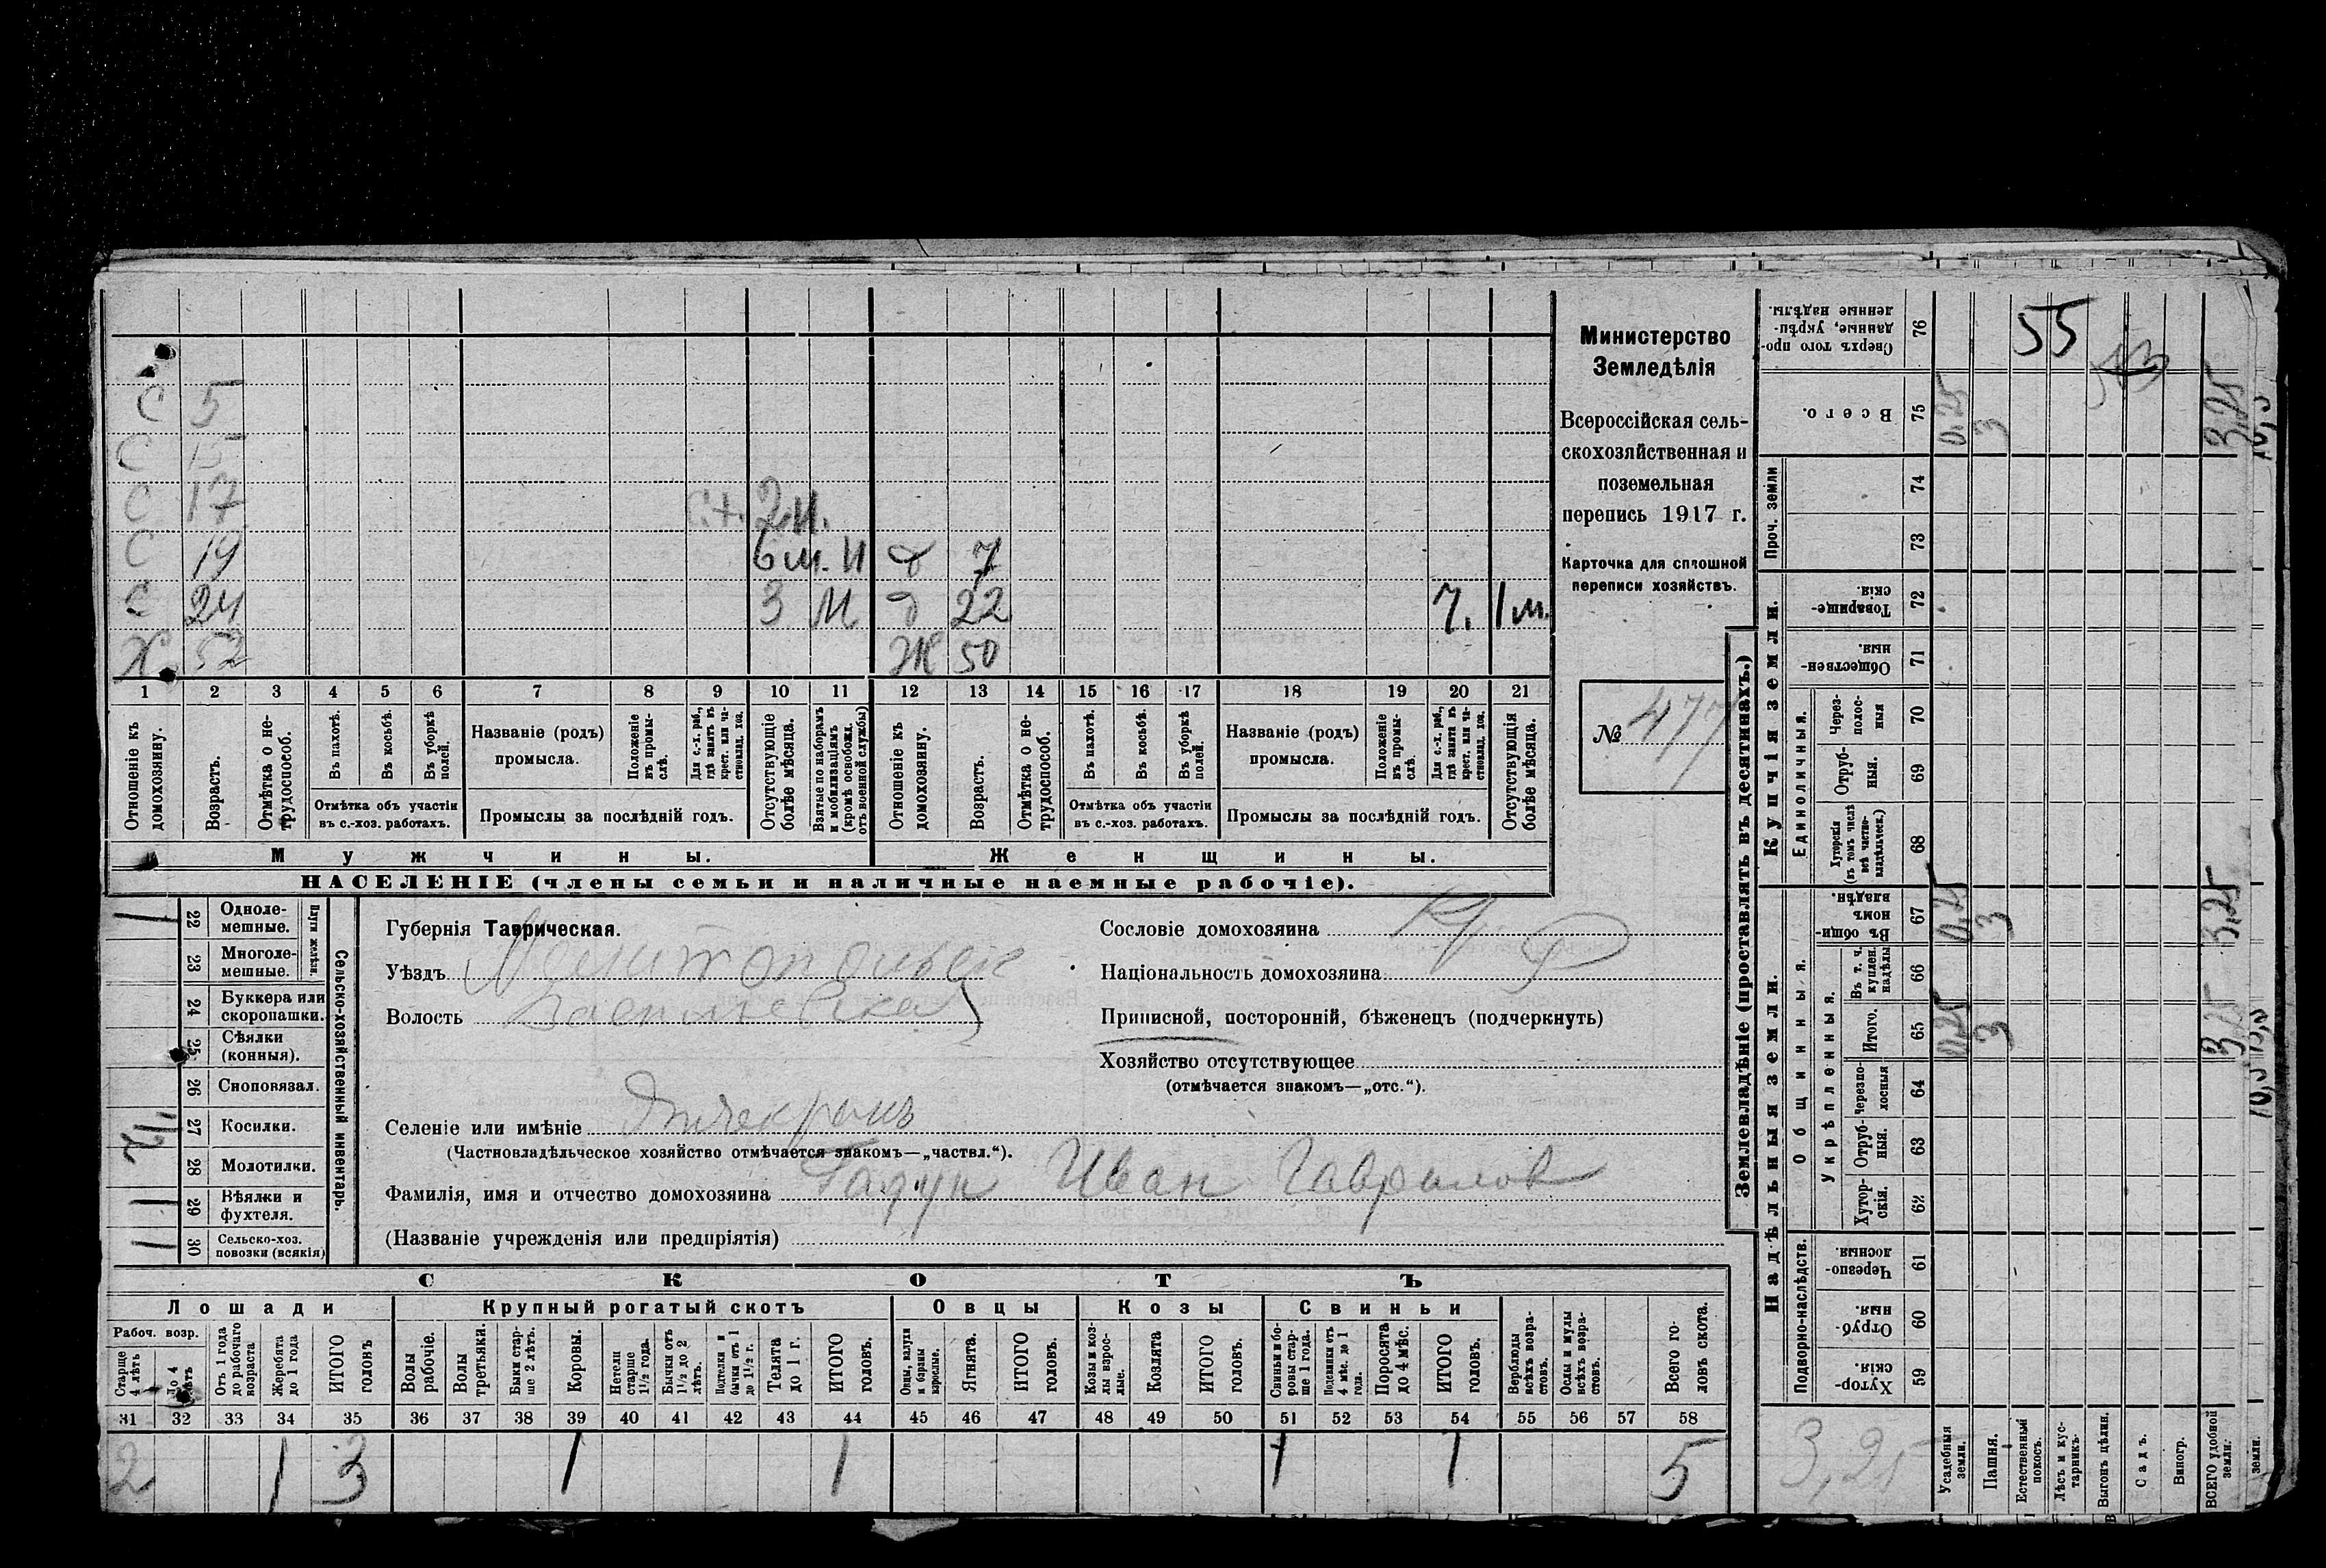 С 5
С 15
С 17 2 м.
С 19 6 м. И д 7
С 24 3 М д 22 7. 1 м.
Х. 52 Ж 50
1 2 3 4 5 6 7 8 9 10 11 12 13 14 15 16 17 18 19 20 21
Отношеніе къ домохозяину.
Возрастъ.
Отмѣтка о не-трудоспособ.
Въ пахотѣ.
Въ косьбѣ.
Въ уборкѣ полей.
Отмѣтка объ участіи въ с.-хоз. работахъ.
Названіе (родъ) промысла.
Положеніе въ промы-слѣ.
Для с.-х. раб., гдѣ занятъ въ крест. или ча-стновлад. хоз.
Промыслы за послѣдній годъ.
Отсутствующіе болѣе мѣсяца.
Взятые по наборамъ и мобилизаціямъ (кромѣ освобожд. отъ военной службы)
Отношеніе къ домохозяину.
Возрастъ.
Отмѣтка о не-трудоспособ.
Въ пахотѣ.
Въ косьбѣ.
Въ уборкѣ полей.
Отмѣтка объ участіи въ с.-хоз. работахъ.
Названіе (родъ) промысла.
Положеніе въ промы-слѣ.
Для с.-х. раб., гдѣ занята въ крест. или ча-стновлад. хоз.
Промыслы за послѣдній годъ.
Отсутствующія болѣе мѣсяца.
Мужчины.
Женщины.
НАСЕЛЕНІЕ (члены семьи и наличные наемные рабочіе).
Министерство
Земледѣлія
Всероссійская сель-
скохозяйственная и
поземельная
перепись 1917 г.
Карточка для сплошной
переписи хозяйствъ.
№ 477
Сельско-хозяйственный инвентарь.
Плуги желѣзн.
22 Одноле-мешные. 1
23 Многоле-мешные.
24 Буккера или скоропашки.
25 Сѣялки (конныя).
26 Сноповязал.
27 Косилки. 1/2
28 Молотилки.
29 Вѣялки и фухтеля. 1
30 Сельско-хоз. повозки (всякія) 1
Губернія Таврическая.
Уѣздъ Мелитопольск
Волость Васильевская
Селеніе или имѣніе
(Частновладѣльческое хозяйство отмѣчается знакомъ—„частвл.“).
Фамилія, имя и отчество домохозяина Гадун Иван Гаврилов
(Названіе учрежденія или предпріятія)
Сословіе домохозяина Кр.
Національность домохозяина Р
Приписной, посторонній, бѣженецъ (подчеркнуть)
Хозяйство отсутствующее
(отмѣчается знакомъ—„отс.“).
СКОТЪ
Лошади
Крупный рогатый скотъ
Овцы
Козы
Свиньи
Рабоч. возр.
Старще 4 лѣтъ
до 4 лѣтъ
Отъ 1 года до рабочаго возраста
Жеребята до 1 года
ИТОГО головъ
Волы рабочіе.
Волы третьяки.
Быки стар-ше 2 лѣтъ.
Коровы.
Нетели старше 1½ года.
Бычки отъ 1½ до 2 лѣтъ.
Подтелки и бычки отъ 1 до 1½ г.
Телята до 1 г.
ИТОГО головъ.
Овцы, валухи и бараны взрослые.
Ягнята.
ИТОГО головъ.
Козы и коз-лы взрос-лые.
Козлята
ИТОГО головъ.
Свиньи и бо-ровы стар-ше 1 года.
Подсвинки отъ 4 мѣс. до 1 года.
Поросята до 4 мѣс.
ИТОГО головъ.
Верблюды всѣхъ возра-стовъ.
Ослы и мулы всѣхъ возра-стовъ.
Всего го-ловъ скота.
31 32 33 34 35 36 37 38 39 40 41 42 43 44 45 46 47 48 49 50 51 52 53 54 55 56 57 58
2 1 3 1 1 1 1 5
Землевладѣніе (проставлять въ десятинахъ.)
Надѣльныя земли.
Купчія земли.
Проч. земли
Подворно-наслѣдств.
Общинныя.
Укрѣпленныя.
Единоличныя.
Сверхъ того про-данные, укрѣп-ленные надѣлы. 76 55
Всего. 75 0,25 3 3,25
74
73
Товарище-скія. 72
Обществен-ныя. 71
Через-полос-ныя 70
Отруб-ныя. 69
Хуторскія (въ томъ числѣ всѣ частно-владѣльческ.) 68
Въ общи-номъ владѣн. 67 0,25 3 3,25
Въ т. ч. куплен. надѣлы 66
Итого. 65 0,25 3 3,25
Черезпо-лосныя 64
Отруб-ныя. 63
Хутор-скія. 62
Черезпо-лосныя. 61
Отруб-ныя. 60
Хутор-скія. 59
3,25
Усадебныя земли.
Пашня.
Естественный покосъ.
Лѣсъ и кус-тарникъ.
Выгонъ цѣлин.
Садъ.
Виногр.
ВСЕГО удобной земли.
земли.